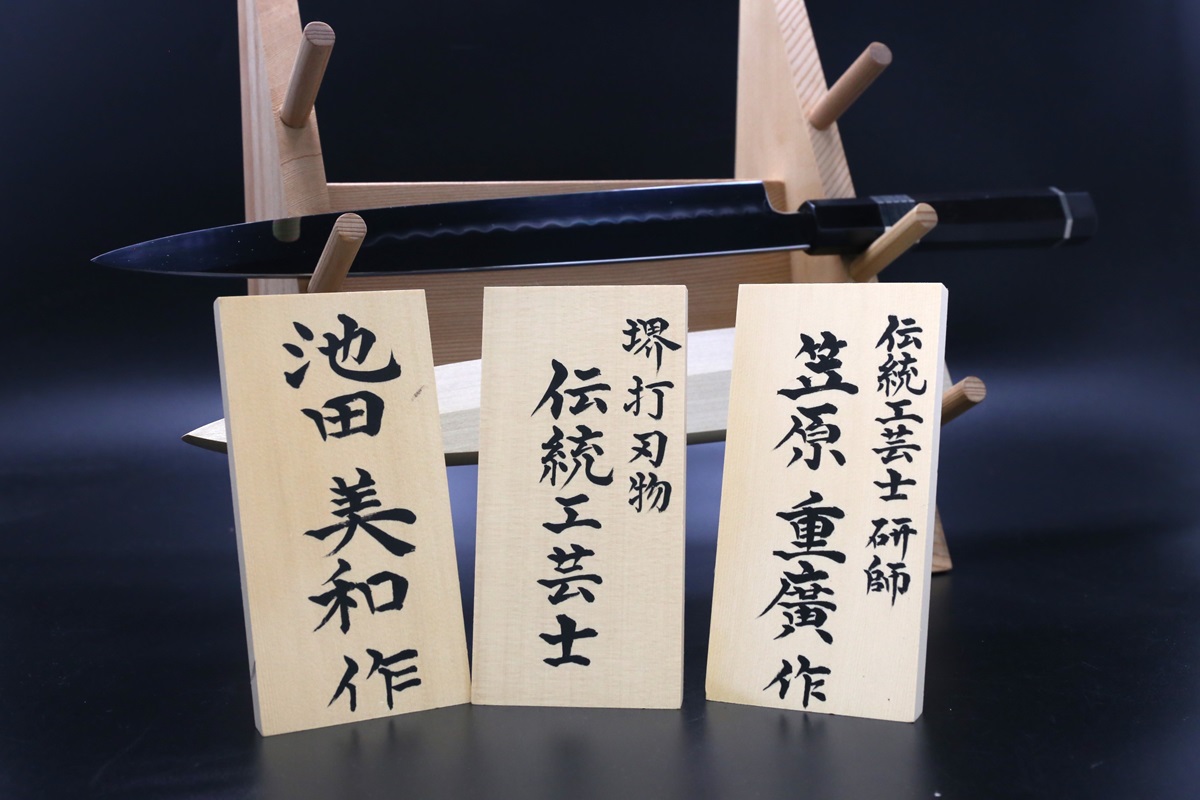 池田 美和 作
堺打刃物
伝統工芸士
伝統工芸士 研師
笠原 重廣 作